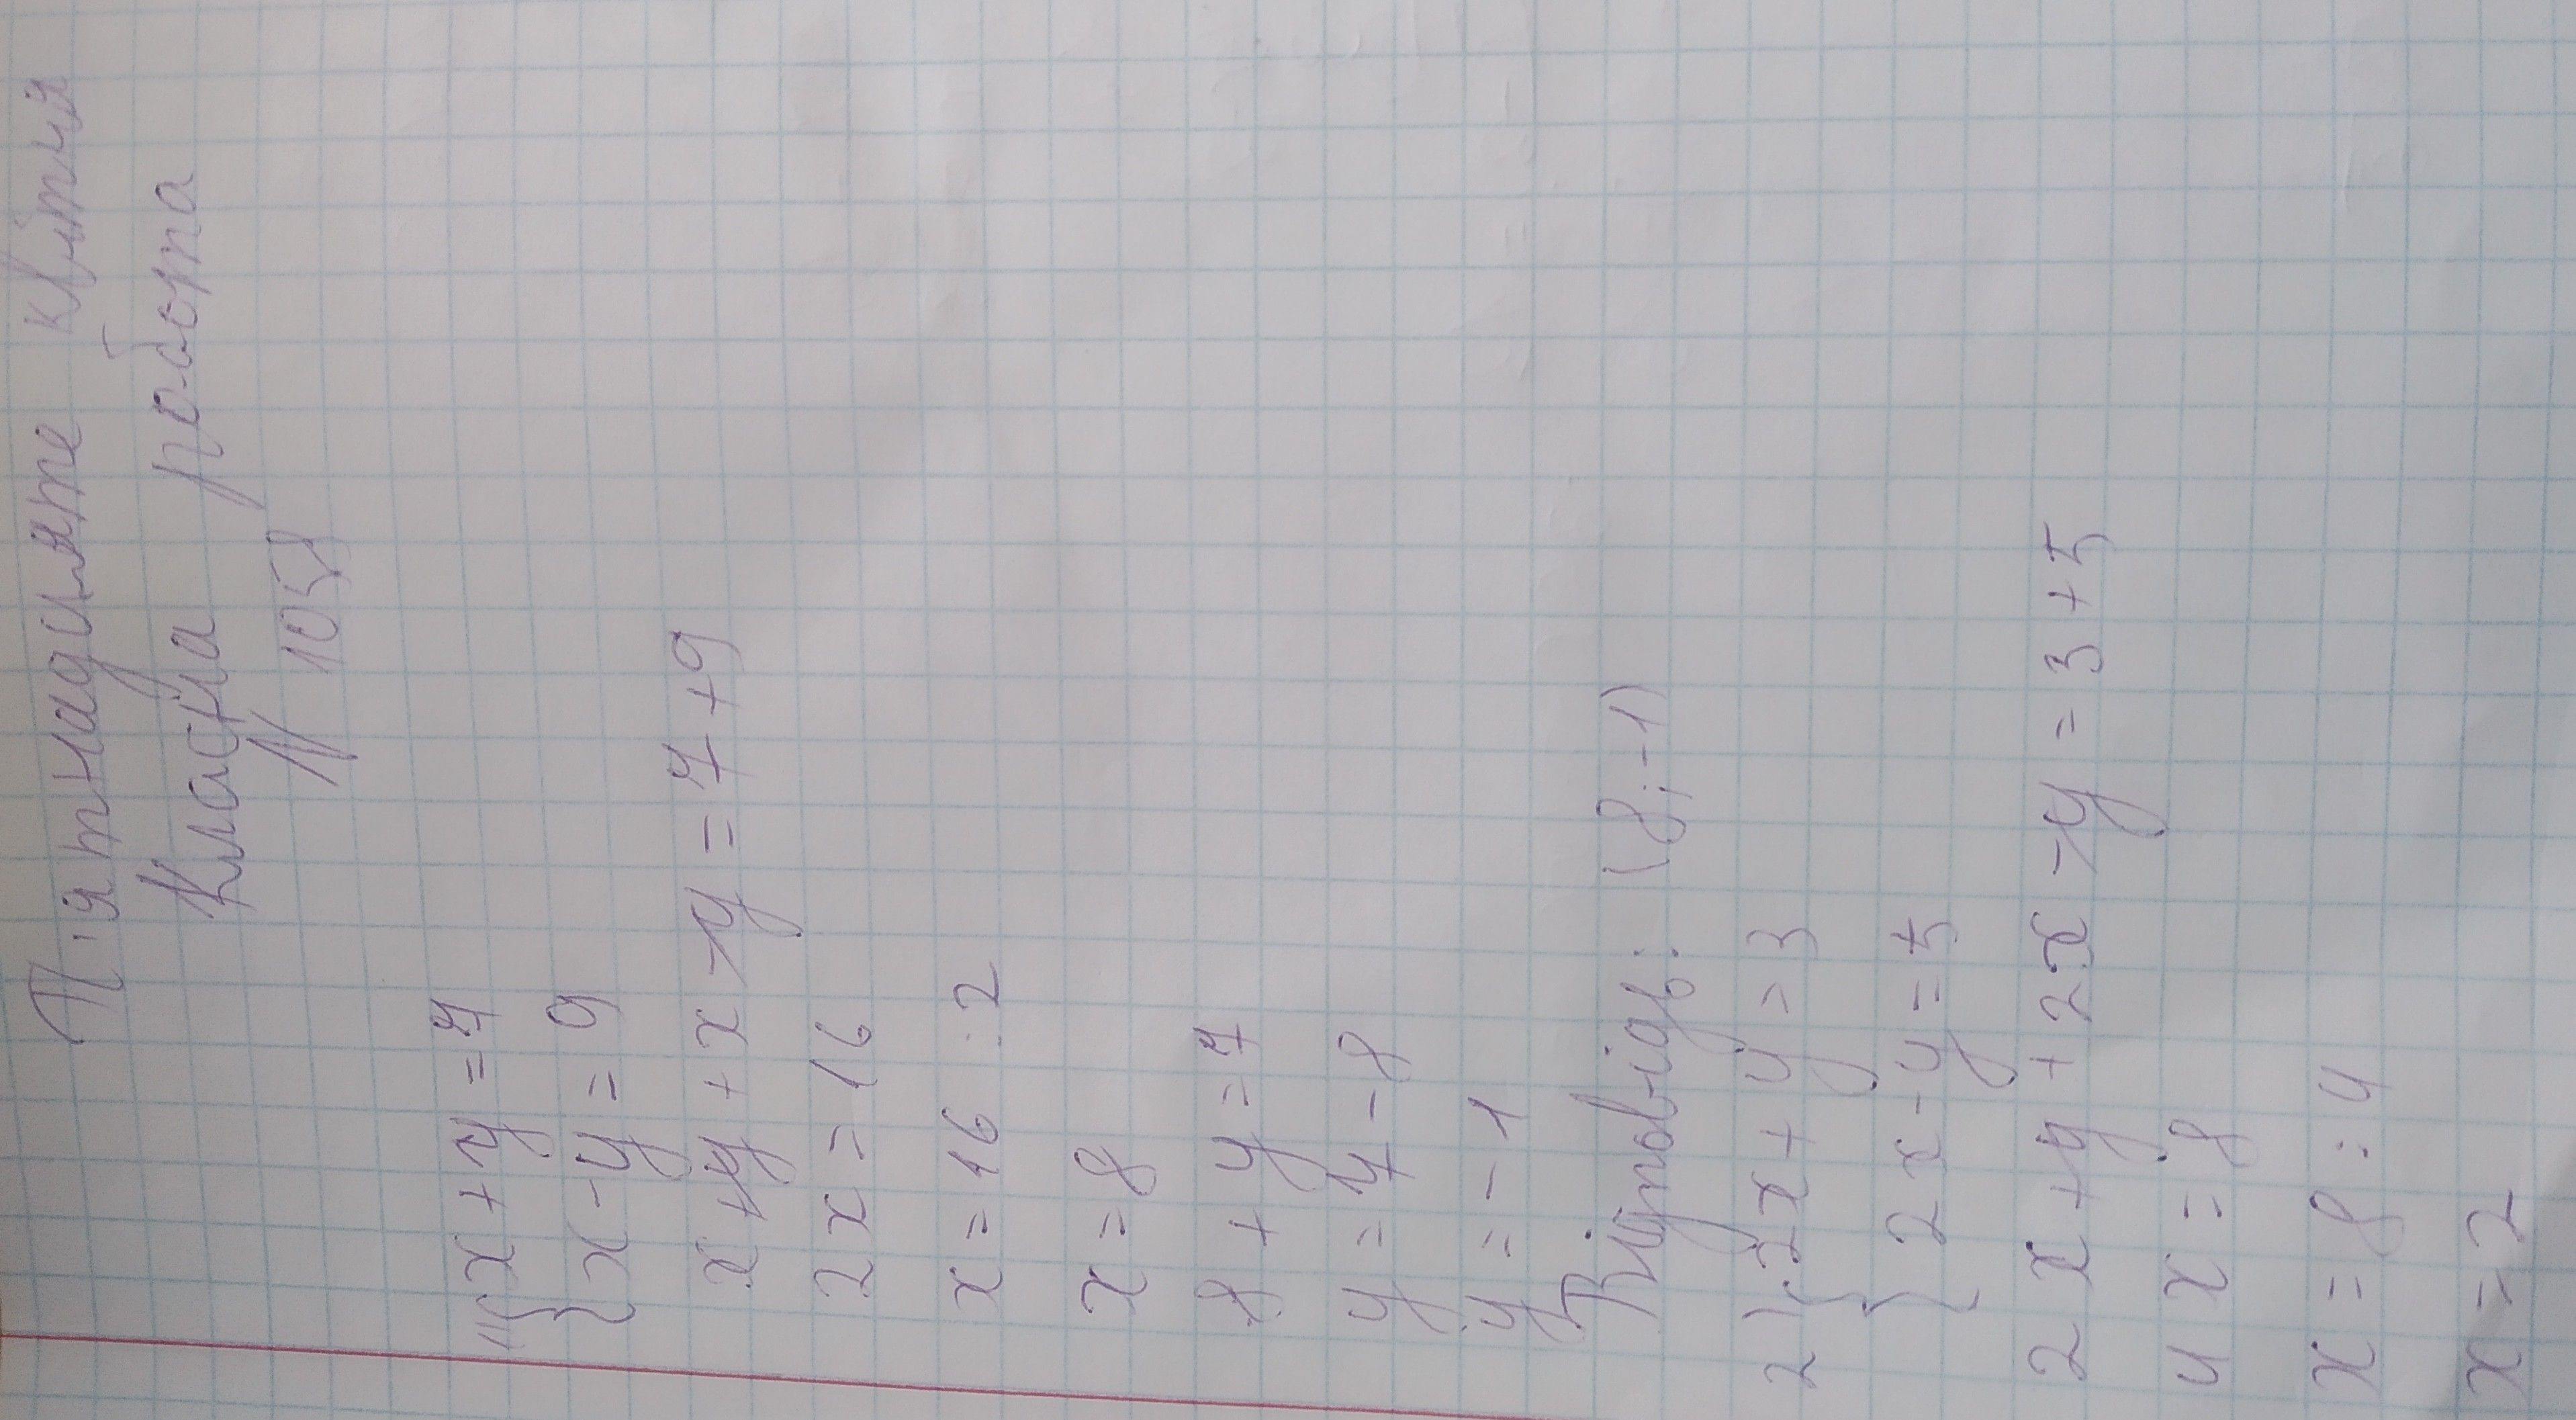 П'ятнадцяте квітня
Класна робота
N 1058
1) { x + y = 7
{ x - y = 9
x + y + x - y = 7 + 9
2x = 16
x = 16 : 2
x = 8
8 + y = 7
y = 7 - 8
y = - 1
Відповідь: (8; -1)
2) { 2x + y = 3
{ 2x - y = 5
2x + y + 2x - y = 3 + 5
4x = 8
x = 8 : 4
x = 2